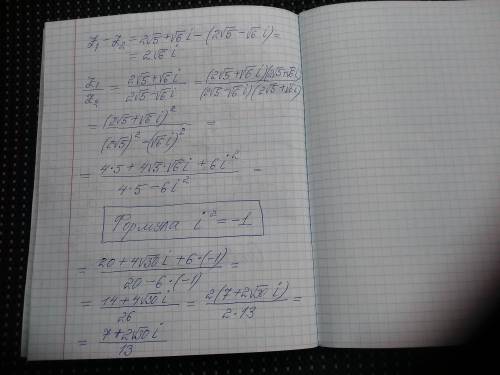 z₁ - z₂ = 2√5 + √6 i - (2√5 - √6 i) =
= 2√6 i
z₁/z₂ = (2√5 + √6 i)/(2√5 - √6 i) = (2√5 + √6 i)(2√5 + √6 i)/(2√5 - √6 i)(2√5 + √6 i)
= (2√5 + √6 i)²/((2√5)² - (√6 i)²) =
= (4·5 + 4√5·√6 i + 6i²)/(4·5 - 6i²) =
Формула i² = -1
= (20 + 4√30 i + 6·(-1))/(20 - 6·(-1)) =
= (14 + 4√30 i)/26 = 2(7 + 2√30 i)/(2·13) =
= (7 + 2√30 i)/13